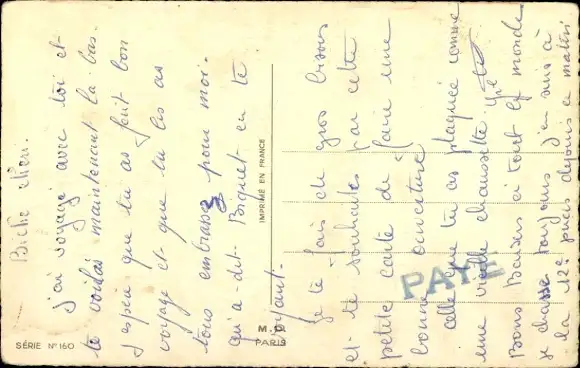 Biche chérie.
j'ai voyagé avec toi et
te voilà maintenant là bas.
J'espère que tu as fait bon
voyage et que tu les as
tous embrassés pour moi.
qu'a dit Biquet en te
voyant.
Je te fais de gros bisous
et te souhaite par cette
petite carte de faire une
bonne
celle que tu as plaquée comme
une vieille chaussette.
Bons Baisers à tout le monde
je classe toujours j'en suis à
la 12e depuis ce matin
PAYE
IMPRIMÉ EN FRANCE
M.D.
PARIS
SÉRIE N° 160